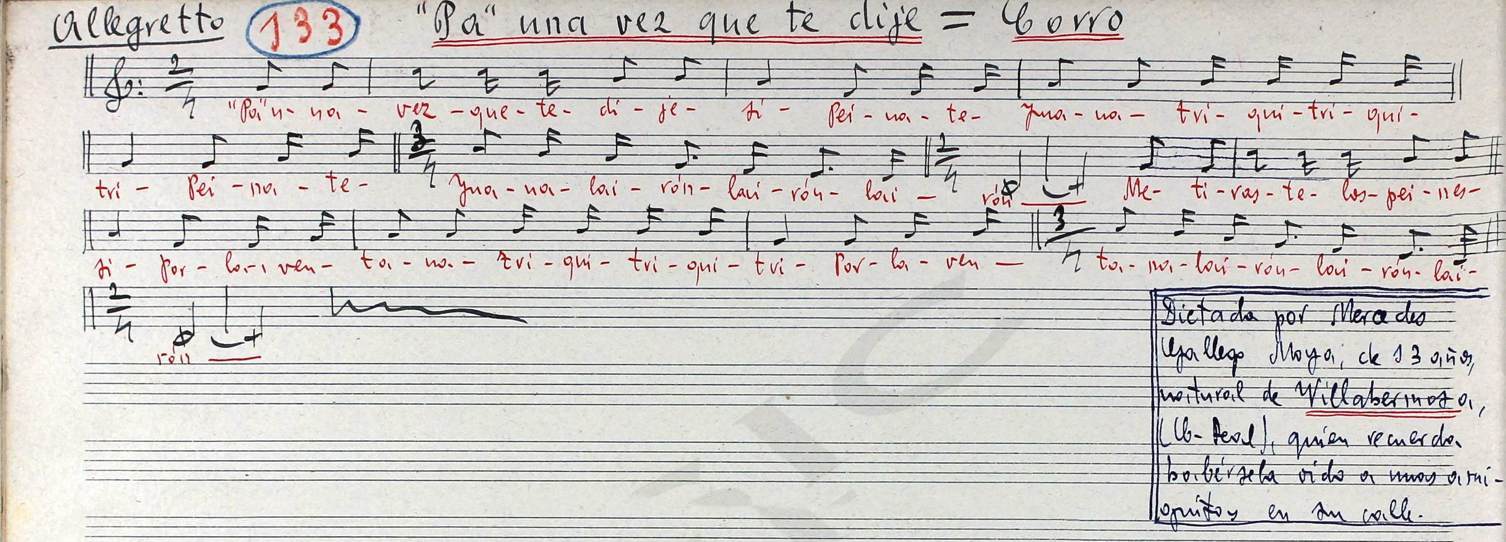 Allegretto 133 "Pa" una vez que te dije = Corro
2/4 "Pa" u-na-vez-que-te-di-je- si- Pei-na-te- Jua-na- tri-qui-tri-qui-
tri- Pei-na-te- 3/4 Jua-na-lai-rón-lai-rón-lai- 2/4 rón Me-ti-ras-te-los-pei-nes-
si- Por-la-ven-ta-na- tri-qui-tri-qui-tri- Por-la-ven- 3/4 ta-na-lai-rón-lai-rón-lai-
2/4 rón
Dictada por Mercedes
Gallego Moya, de 13 años,
natural de Villahermosa,
(C-Real), quien recuerda
habérsela oído a unas ami-
guitas en su calle.